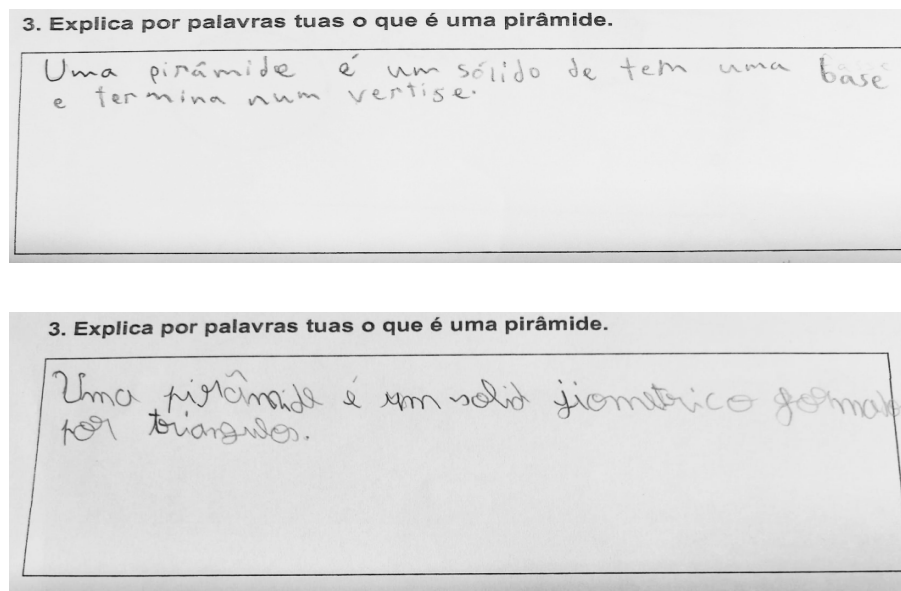 3. Explica por palavras tuas o que é uma pirâmide.
Uma pirâmide é um sólido de tem uma base
e termina num vertise.
3. Explica por palavras tuas o que é uma pirâmide.
Uma pirâmide é um solid jiometrico formado
por triangulos.